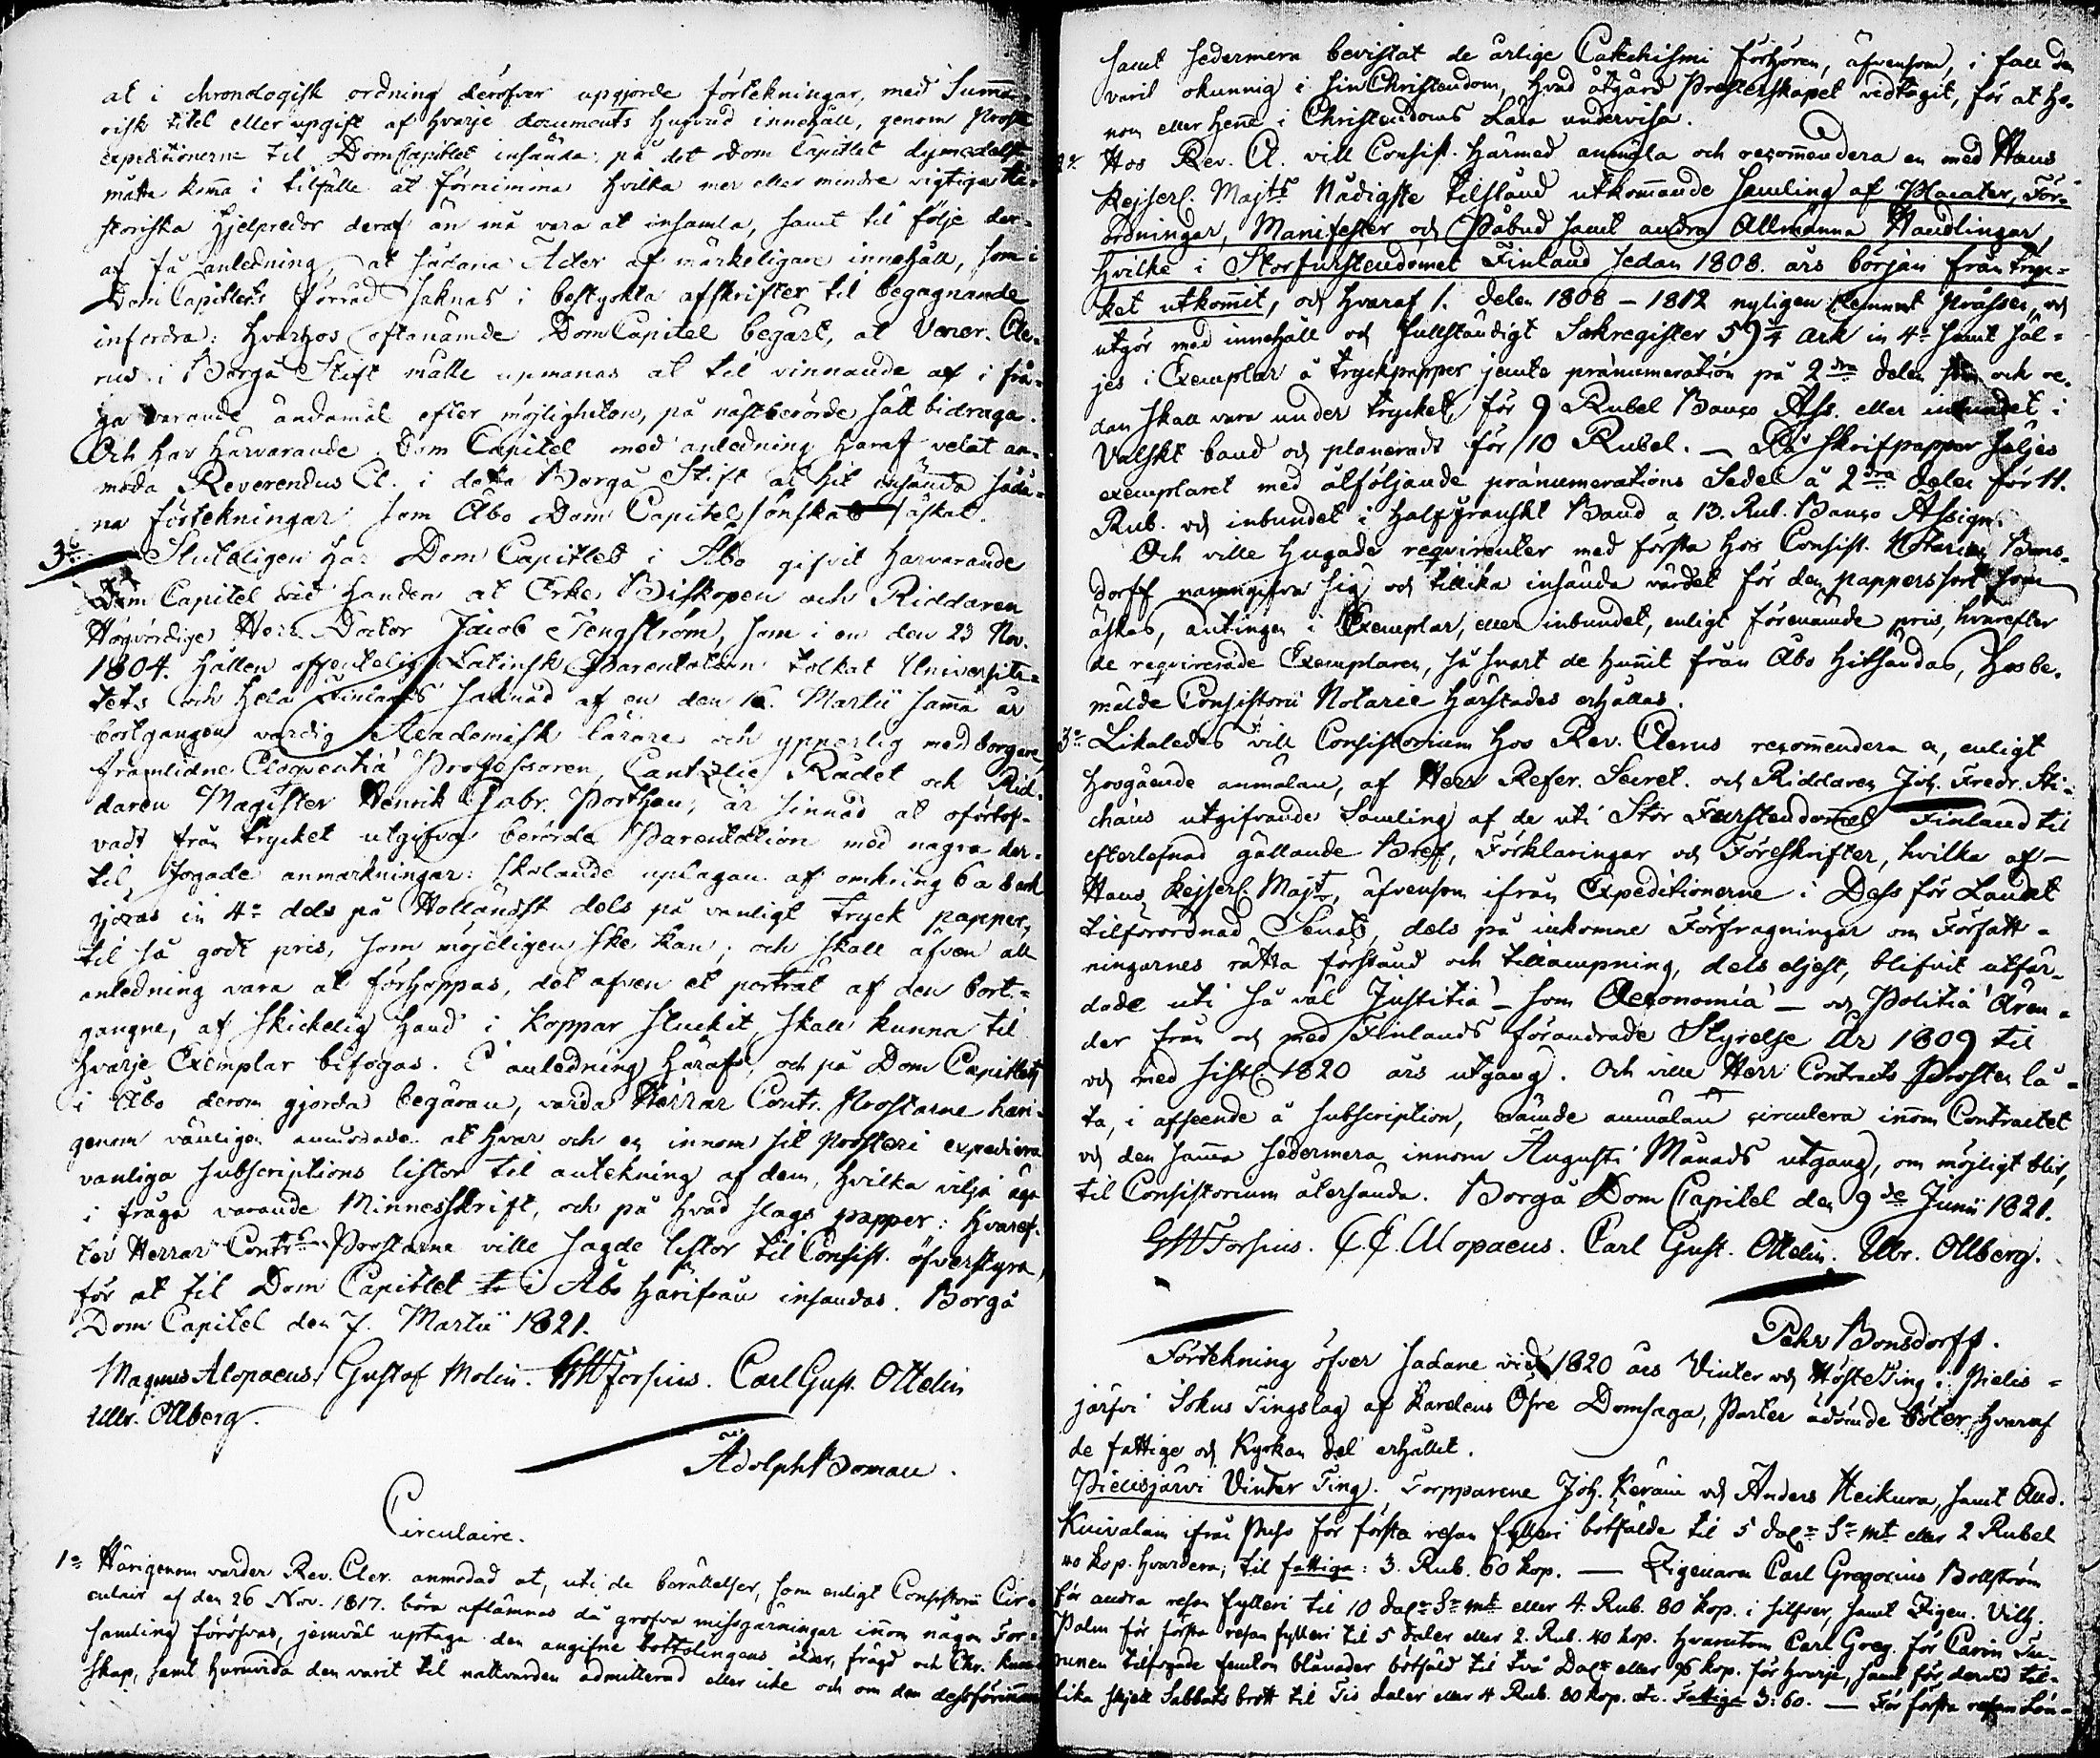 at i chronologisk ordning deröfver upgjorde förtekningar, med Summa-
risk titel eller upgift af hvarje documents hufvud innehåll, genom Prosts
expeditionerne til DomCapitlet insända: på det Dom Capitlet dymedelst
måtte koma i tilfälle at förnimma hvilka mer eller mindre vigtiga Hi-
storiska Hjelpredor deraf än må vara at insamla, samt til följe der-
af få anledning, at sådana Acter af märkeligare innehåll, som i
Dom Capitlets förråd saknas i bestyrkta afskrifter til begagnande
infordra: hvarhos oftanämde DomCapitel begärt, at Vener. Cle-
rus i Borgå Stift måtte upmanas at til vinnande af i frå-
ga varande ändamål efter möjligheten, på nästberörde sätt bidraga.
Och har härvarande Dom Capitel med anledning häraf velat an-
moda Reverendus Cl. i detta Borgå Stift at hit insända såda-
na förtekningar som Åbo Dom Capitel äskat.
3o Sluteligen har Dom Capitlet i Åbo gifvit härvarande
Dom Capitel vid handen at Erke Biskopen och Riddaren
Högvördige Herr Doctor Jacob Tengström, som i en den 23 Nov.
1804. hållen offentelig Latinsk Parentation tolkat Universite-
tets och hela Finlands saknad af en den 16. Martii samma år
bortgången värdig Academisk Lärare och ypperlig medborgare
framlidne Eloquentiæ Professoren, Cantzlie Rådet och Rid-
daren Magister Henrik Gabr. Porthan, är sinnad at oförtöf-
vadt från trycket utgifva berörde Parentation med några der-
til fogade anmärkningar: skolande uplagan af omkring 6 a 8 ark
göras in 4o dels på Holländskt dels på vanligt tryck papper,
til så godt pris, som möjeligen ske kan; och skall äfven all
anledning vara at förhoppas, det äfven et portrait af den bort-
gangne, af skickelig hand i koppar stuckit, skall kunna til
hvarje Exemplar bifogas. I anledning häraf, och på Dom Capitlets
i Åbo derom gjorda begäran, varda Herrar Contr. Prostarne häri-
genom vänligen anmodade at hvar och en innom sit Prosteri expediera
vanliga subscriptions listor til antekning af dem, hvilka vilja äga
i fråga varande Minnesskrift, och på hvad slags papper: hvaref-
ter Herrar Contrs Prostarne ville sagde listor til Consist. öfverstyra,
för at til Dom Capitlet i Åbo härifrån insändas. Borgå
Dom Capitel den 7. Martii 1821.
Magnus Alopaeus. Gustaf Molin. GWForsius. Carl Gust. Ottelin
Ulbr. Ollberg.
Adolph Boman.
Circulaire.
1o Härigenom varder Rev. Cler. anmodad at, uti de berättelser, som enligt Consistorii Cir-
culair af den 26 Nov. 1817. böra aflämnas då grofva missgärningar inom någon För-
samling föröfvas, jemväl uptaga den angifne brottslingens ålder, frägd och Chr. kun-
skap, samt huruvida den varit til nattvarden admitterad eller icke och om den dessförinnan
samt sedermera bevistat de årlige Catechismi förhören, äfvensom, i fall den
varit okunnig i sin Christendom, hvad åtgärd Presterskapet vidtagit, för at ho-
nom eller henne i Christendoms Lära undervisa.
2o Hos Rev. Cl. vill Consist. härmed anmäla och recommendera en med Hans
Kejserl. Majts Nådigste tilstånd utkommande Samling af Placater, För-
ordningar, Manifester och Påbud samt andra Allmänna Handlingar,
hvilke i Storfurstendömet Finland sedan 1808. års början från tryc-
ket utkommit, och hvaraf 1. delen 1808 - 1812 nyligen lemnat Prässen, och
utgör med innehåll och fullständigt Sakregister 59 1/4 ark in 4o samt säl-
jes i Exemplar å tryckpapper jemte pränumeration på 2dra delen som och re-
dan skall vara under trycket för 9 Rubel Banco Ass. eller inbundet i
Valskt band och planeradt för 10 Rubel. — På skrifpapper säljes
exemplaret med åtföljande pränumerations Sedel å 2dra delen för 11.
Rub. och inbundet i halffranskt Band a 13. Rub. Banco Assign.
Och ville hugade reqvirenter med första hos Consist. Notarien Bons-
dorff namngifva sig och tillika insända värdet för den papperssort som
äskas, antingen i Exemplar, eller inbundet, enligt förenämde pris, hvarefter
de reqvirerade Exemplaren, så snart de hunnit från Åbo hitsändas, hos be-
mälde Consistorii Notarie härstädes erhållas.
3o Likaledes vill Consistorium hos Rev. Clerus recommendera en, enligt
hosgående anmälan, af Herr Refer. Secret. och Riddaren Joh. Fredr. Sti-
chæus utgifvande Samling af de uti Stor Furstendömet Finland til
efterlefnad gällande Bref, Förklaringar och Föreskrifter, hvilka af
Hans Kejserl. Majt, äfvensom ifrån Expeditionerne i Dess för Landet
tilförordnad Senat, dels på inkomne Förfragningar om Författ-
ningarnes rätta förstånd och tillämpning, dels eljest, blifvit utfär-
dade uti så väl Justitiæ - som Oeconomiæ - och Politiæ ären-
der från och med Finlands förändrade Styrelse År 1809 til
och med sistl. 1820 års utgång. Och ville Herr Contracts Prosten lå-
ta, i afseende å subscription, nämde anmälan circulera inom Contractet
och den samma sedermera innom Augusti Månads utgång, om möjligt blir,
til Consistorium återsända. Borgå Dom Capitel den 9de Junii 1821.
GWForsius. C.C. Alopaeus. Carl Gust. Ottelin. Ulbr. Ollberg.
Pehr Bonsdorff.
Förtekning öfver sådane vid 1820 års Vinter och Höste Ting i Pielis-
järfvi Sokns Tingslag af Karelens Öfre Domsaga, Parter ådömde böter, hvaraf
de fattige och Kyrkan del erhållet.
Pielisjärvi Vinter Ting. Torpparene Joh. Keräin och Anders Heikura, samt And.
Kuivalain ifrån Puso för första resan fylleri botfälde til 5 dalr Sr mt eller 2 Rubel
40 kop. hvardera; til fattiga: 3. Rub. 60 kop. — Zigenaren Carl Gregorius Bollström
för andra resan fylleri til 10 dalr Sr mt eller 4. Rub. 80 kop. i silfver, samt Zigen. Vilh.
Palm för första resan fylleri til 5 daler eller 2. Rub. 40 kop. hvarutom Carl Greg. för Carin Tu-
runen tilfogade femton blånader botfäld til två Dalr eller 96 kop. för hvarje, samt för derwid til-
lika skjedt Sabbats brott til Tio daler eller 4 Rub. 80 kop. etc. Fattiga 3:60. — För första resan Lön-